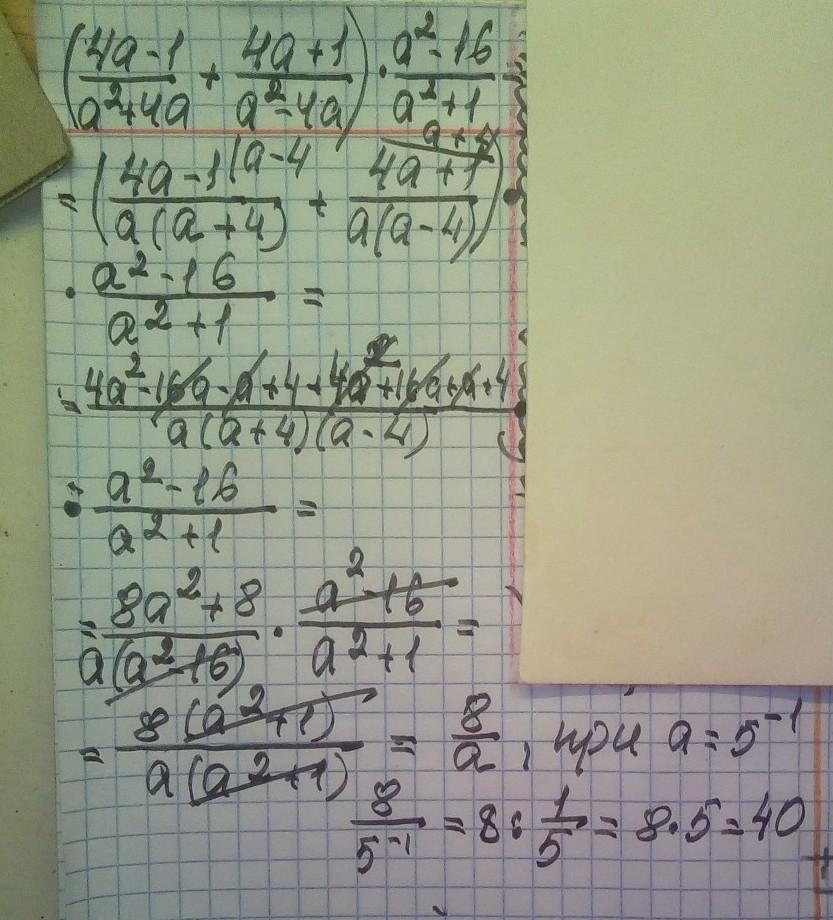 (4a-1/a²+4a + 4a+1/a²-4a) · a²-16/a²+1 =
= (4a-1(a-4/a(a+4) + 4a+1(a+4/a(a-4)) ·
· a²-16/a²+1 =
= 4a²-16a-a+4+4a²+16a+a+4/a(a+4)(a-4) ·
· a²-16/a²+1 =
= 8a²+8/a(a²-16) · a²-16/a²+1 =
= 8(a²+1)/a(a²+1) = 8/a, при a=5⁻¹
8/5⁻¹ = 8:1/5 = 8·5=40